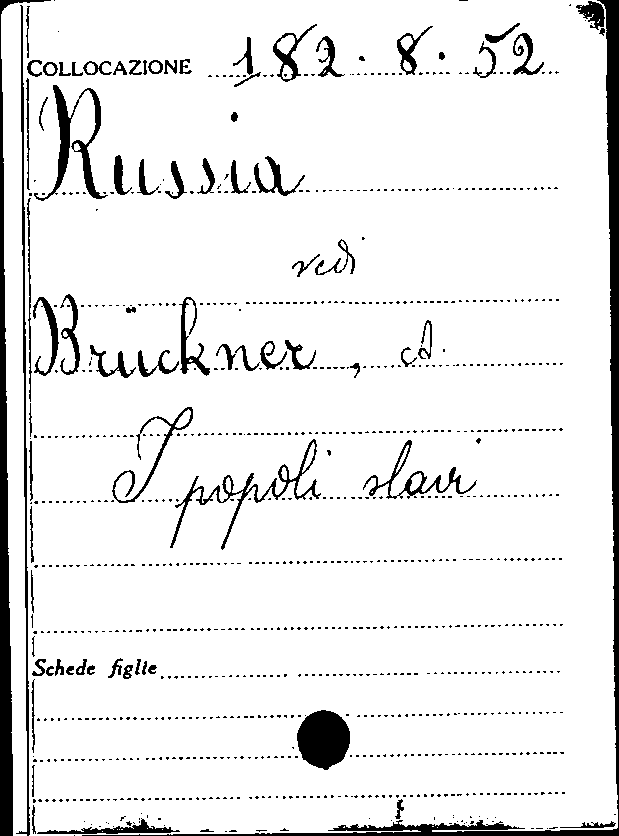 COLLOCAZIONE 182.8.52
Russia
vedi
Brückner, A.
I popoli slavi
Schede figlie